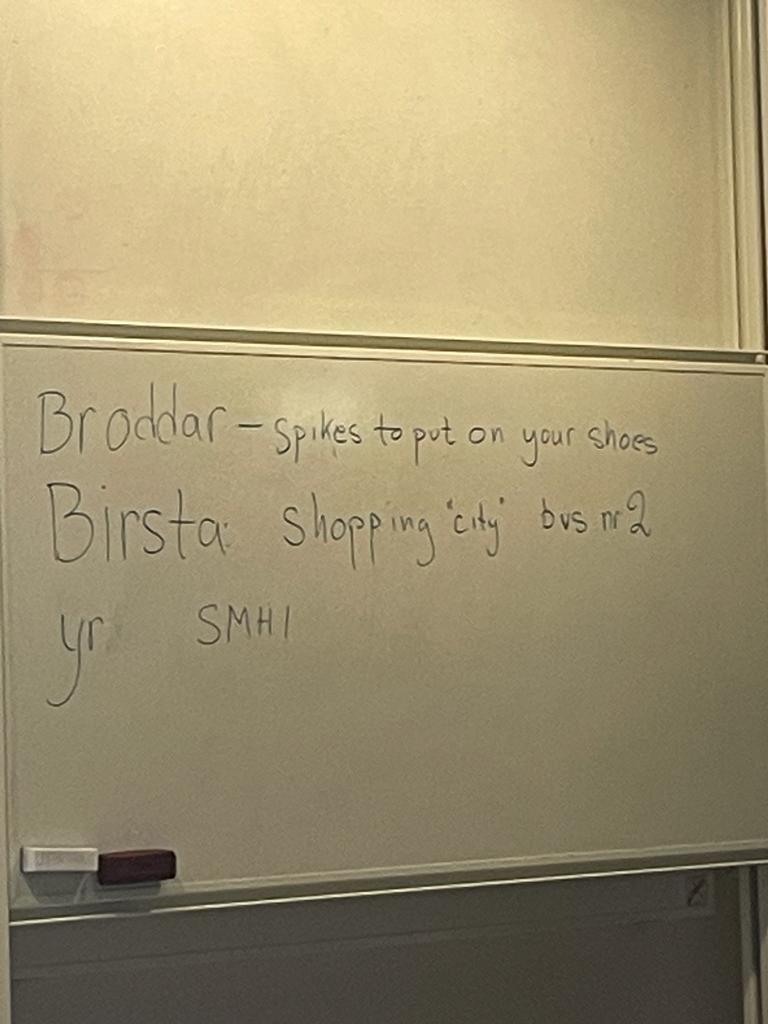 Broddar - spikes to put on your shoes
Birsta: shopping "city" bus nr 2
yr SMHI